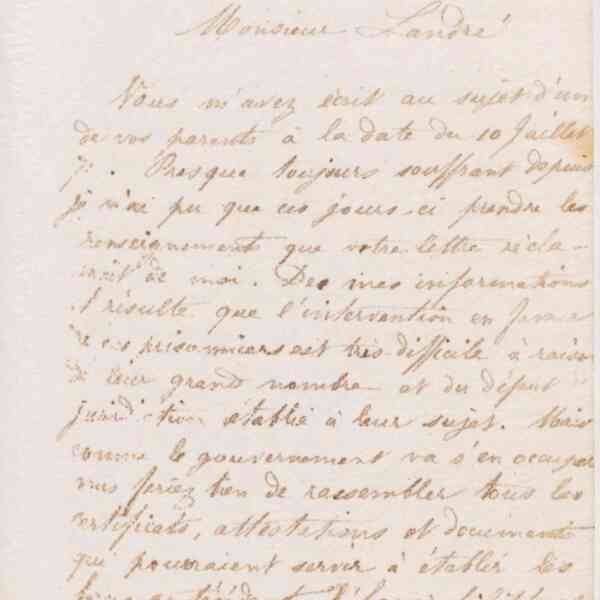 Monsieur Landré
Vous m'avez écrit au sujet d'un
de vos parents à la date du 10 Juillet
71. Presque toujours souffrant depuis
je n'ai pu que ces jours-ci prendre les
renseignements que votre lettre récla-
mait de moi. De mes informations
il résulte que l'intervention en faveur
de ces prisonniers est très difficile à raison
de leur grand nombre et du défaut
juridiction établie à leur sujet. Mais
comme le gouvernement va s'en occuper
vous feriez bien de rassembler tous les
certificats, attestations et documents
qui pourraient servir à établir les